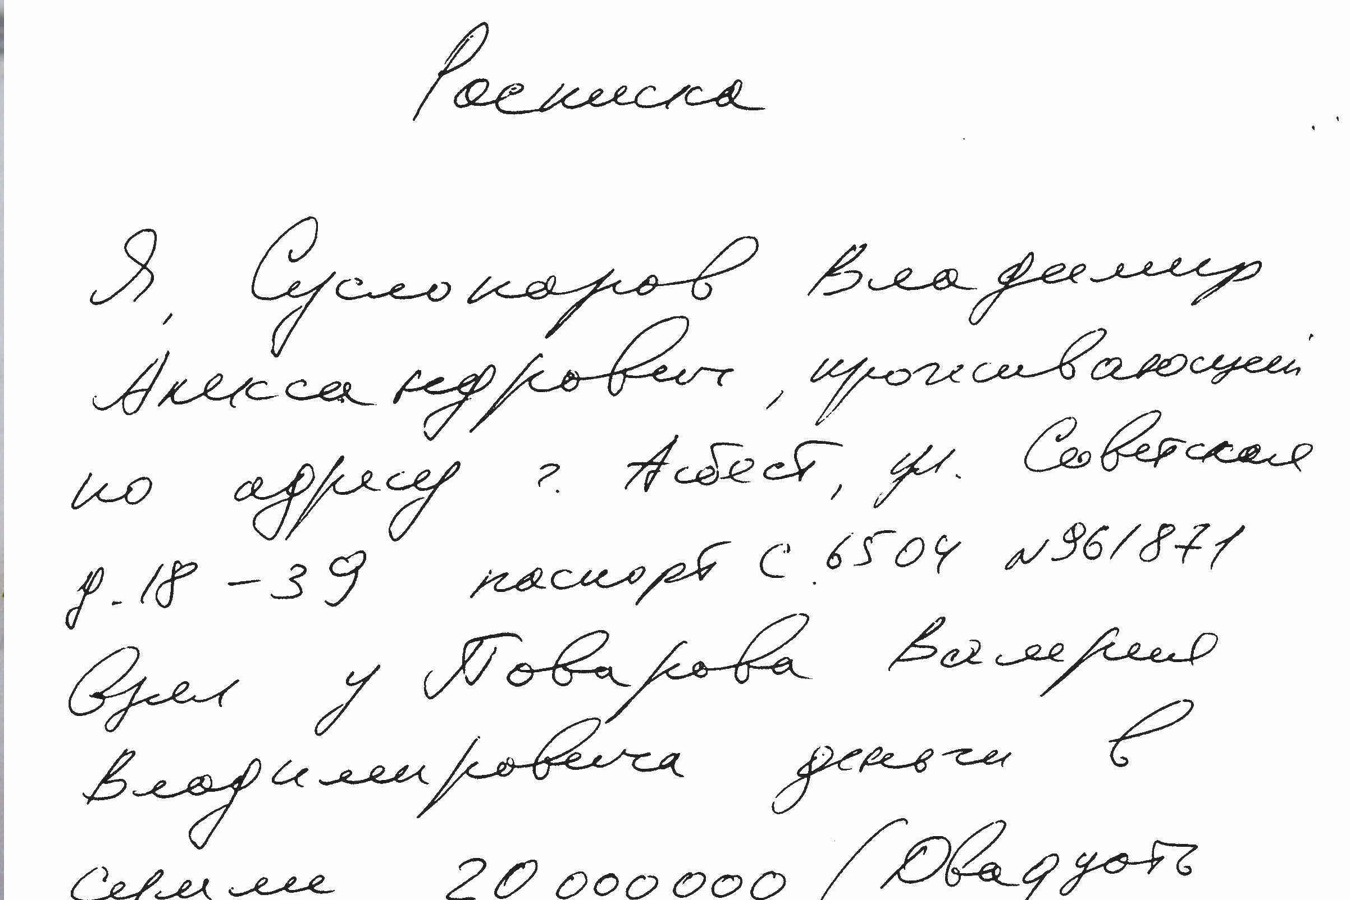 Расписка
Я, Суслопаров Владимир
Александрович, проживающий
по адресу г. Асбест, ул. Советская
д. 18 - 39 паспорт с. 6504 N961871
Взял у Поварова Валерия
Владимировича деньги в
сумме 20 000 000 (Двадцать